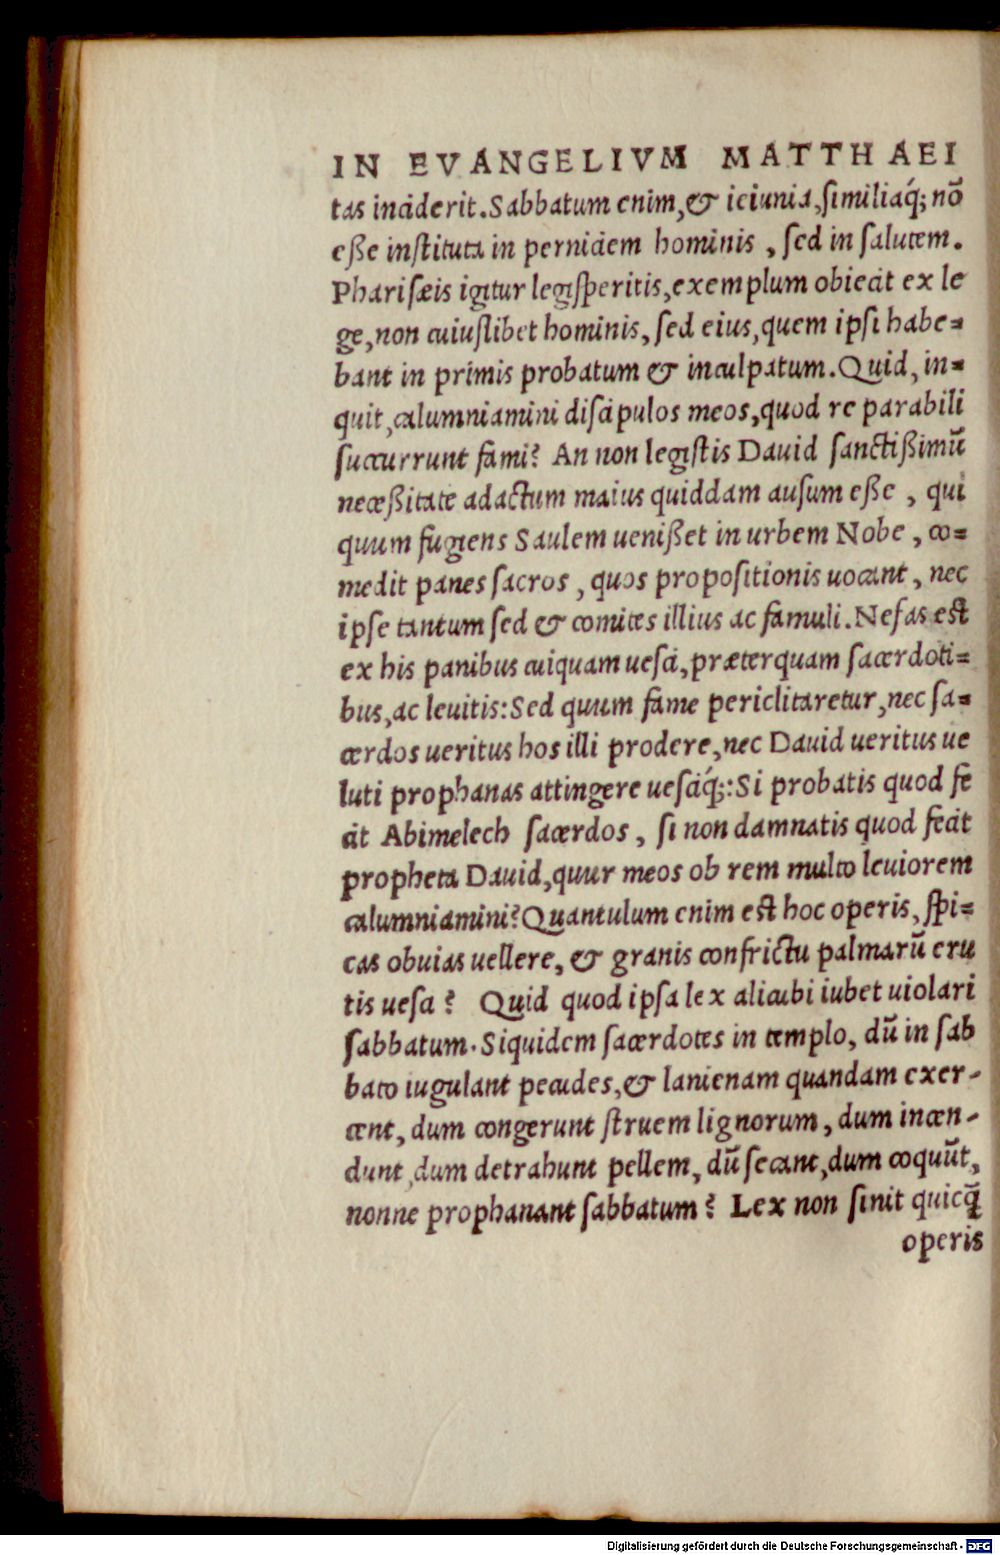 IN EVANGELIVM MATTHAEI
tas inciderit. Sabbatum enim, & ieiunia, ſimiliaq́; nõ
eße inſtituta in perniciem hominis, ſed in ſalutem.
Phariſæis igitur legiſperitis, exemplum obiecit ex le
ge, non cuiuſlibet hominis, ſed eius, quem ipſi habe=
bant in primis probatum & inculpatum. Quid, in=
quit, calumniamini diſcipulos meos, quod re parabili
ſuccurrunt fami? An non legiſtis Dauid ſanctißimũ
neceßitate adactum maius quiddam auſum eße, qui
quum fugiens Saulem uenißet in urbem Nobe, co=
medit panes ſacros, quos propoſitionis uocant, nec
ipſe tantum ſed & comites illius ac famuli. Nefas eſt
ex his panibus cuiquam ueſci, præterquam ſacerdoti=
bus, ac leuitis: Sed quum fame periclitaretur, nec ſa=
cerdos ueritus hos illi prodere, nec Dauid ueritus ue
luti prophanas attingere ueſciq́;: Si probatis quod fe
cit Abimelech ſacerdos, ſi non damnatis quod fecit
propheta Dauid, quur meos ob rem multo leuiorem
calumniamini? Quantulum enim eſt hoc operis, ſpi=
cas obuias uellere, & granis confrictu palmarũ eru
tis ueſci? Quid quod ipſa lex alicubi iubet uiolari
ſabbatum. Siquidem ſacerdotes in templo, dũ in ſab
bato iugulant pecudes, & lanienam quandam exer-
cent, dum congerunt ſtruem lignorum, dum incen-
dunt, dum detrahunt pellem, dũ ſecant, dum coquũt,
nonne prophanant ſabbatum? Lex non ſinit quicq̃
operis
Digitalisierung gefördert durch die Deutsche Forschungsgemeinschaft - DFG